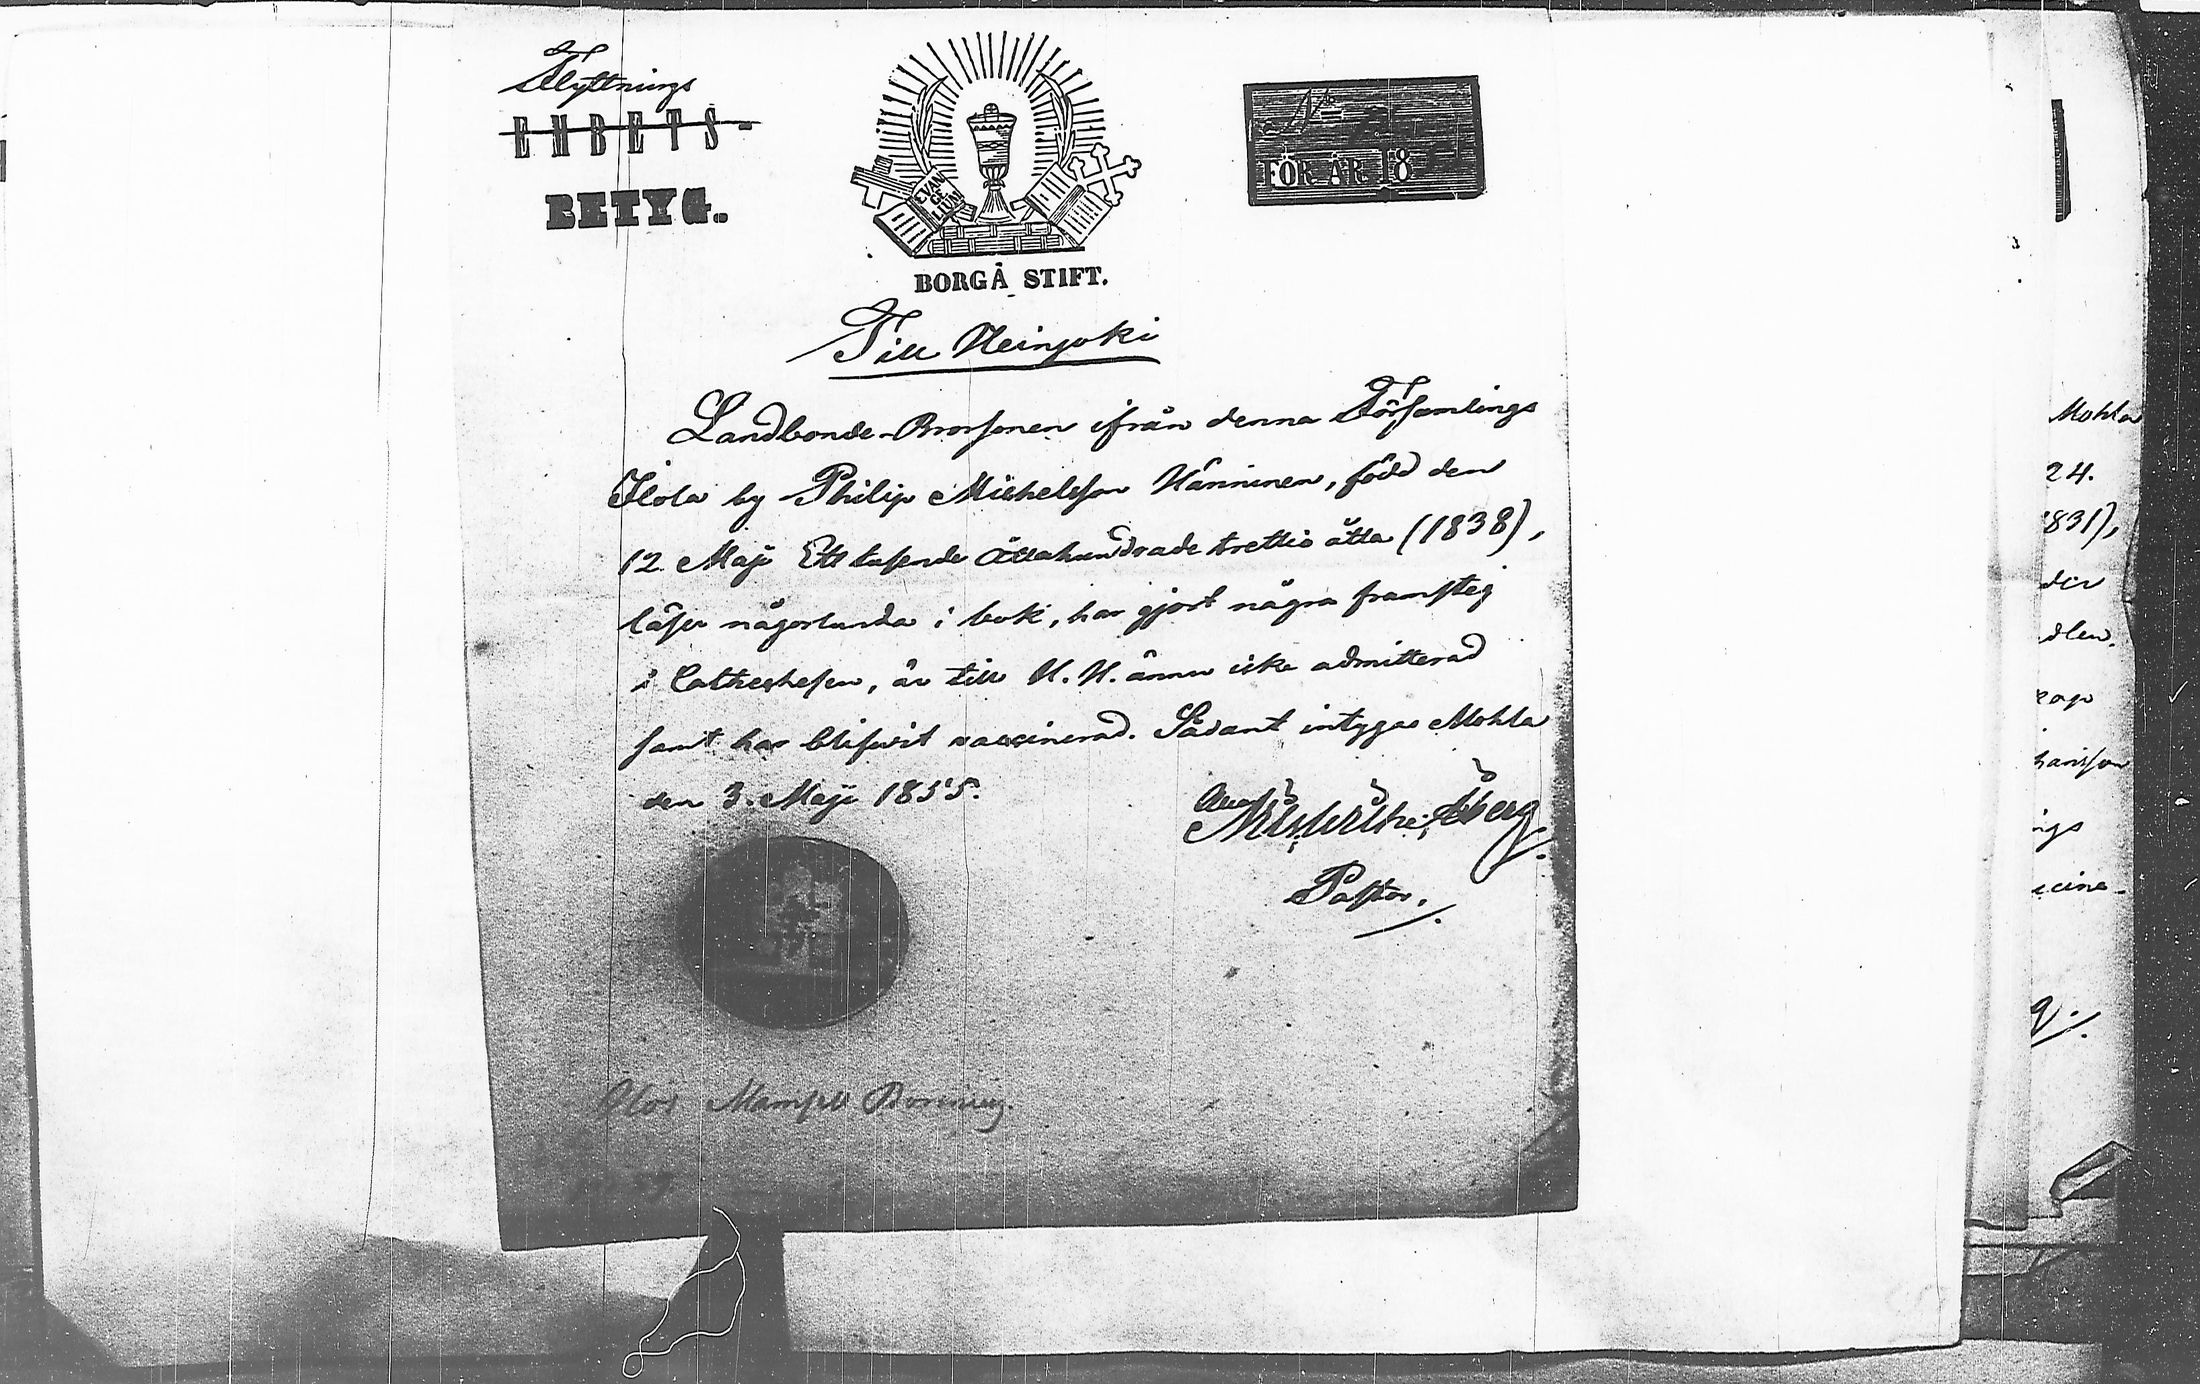 Flyttnings
EHBETS-
BETYG.
EVAN
GE
LIUM
BORGÅ STIFT.
N:o
FÖR ÅR 18
Till Heinjoki
Landbonde-Brorsonen ifrån denna Församlings
Ilola by Philip Michelsson Hänninen, född den
12 Maji Ett tusende Åttahundrade trettio åtta (1838),
läser någorlunda i bok, har gjort några framsteg
i Cathechesen, är till H. H. ännu icke admitterad
samt har blifvit vaccinerad. Sådant intygas Mohla
den 3. Maji 1855.
Åberg
Pastor.
Mohla
24.
1831),
den
dlen.
hansson
ngs
ccine-